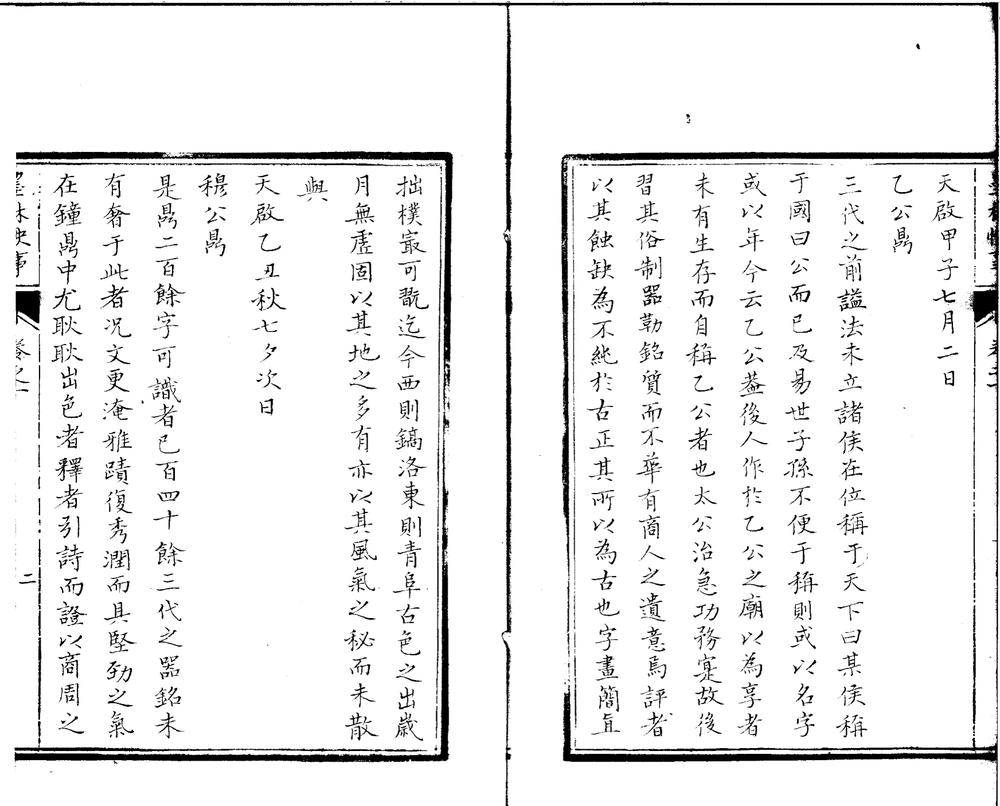 天啟甲子七月二日
乙公鼎
三代之前謚法未立諸侯在位稱于天下曰某侯稱
于國曰公而已及易世子孫不便于稱則或以名字
或以年今云乙公葢後人作於乙公之廟以為享者
未有生存而自稱乙公者也太公治急功務寔故後
習其俗制器勒銘質而不華有商人之遺意焉評者
以其蝕缺為不純於古正其所以為古也字畫簡直
拙樸㝡可翫迄今西則鎬洛東則青阜古色之出嵗
月無虛固以其地之多有亦以其風氣之秘而未散
與
天啟乙丑秋七夕次日
穆公鼎
是鼎二百餘字可識者已百四十餘三代之器銘未
有奢于此者况文更淹雅蹟復秀潤而具堅勁之氣
在鐘鼎中尤耿耿出色者釋者引詩而證以商周之
二